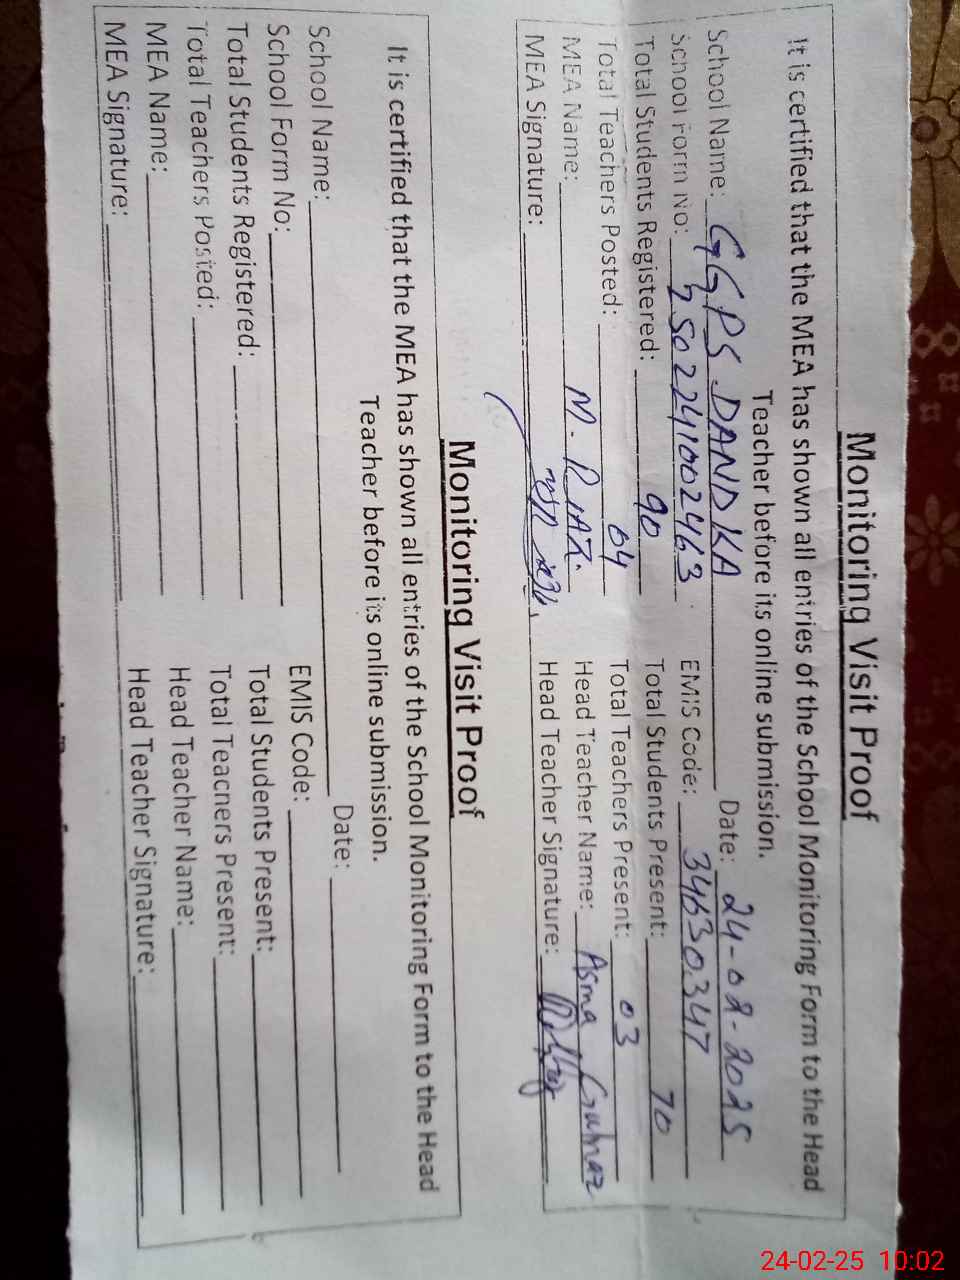 Monitoring Visit Proof
It is certified that the MEA has shown all entries of the School Monitoring Form to the Head
Teacher before its online submission.
School Name: GGPS DANDKA Date: 24-02-2025
School Form No: 2502241002463 EMIS Code: 34630347
Total Students Registered: 90 Total Students Present: 70
Total Teachers Posted: 04 Total Teachers Present: 03
MEA Name: M. RIAZ. Head Teacher Name: Asma Gulnaz
MEA Signature: Head Teacher Signature:
Monitoring Visit Proof
It is certified that the MEA has shown all entries of the School Monitoring Form to the Head
Teacher before its online submission.
School Name: Date:
School Form No: EMIS Code:
Total Students Registered: Total Students Present:
Total Teachers Posted: Total Teachers Present:
MEA Name: Head Teacher Name:
MEA Signature: Head Teacher Signature:
24-02-25 10:02